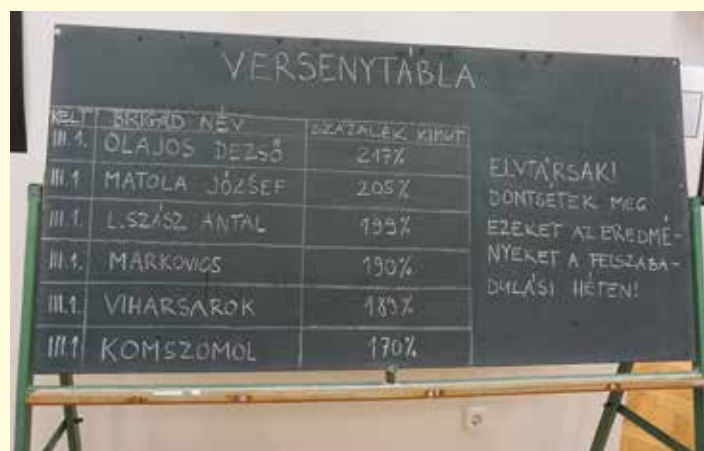 VERSENYTÁBLA
KELT BRIGÁD NÉV SZÁZALÉK KIMUT
III.1. OLAJOS DEZSŐ 217%
III.1 MATOLA JÓZSEF 205%
III.1. L.SZÁSZ ANTAL 199%
III.1. MARKOVICS 190%
III.1. VIHARSAROK 189%
III.1 KOMSZOMOL 170%
ELVTÁRSAK!
DÖNTSETEK MEG
EZEKET AZ EREDMÉ-
NYEKET A FELSZABA-
DULÁSI HÉTEN!